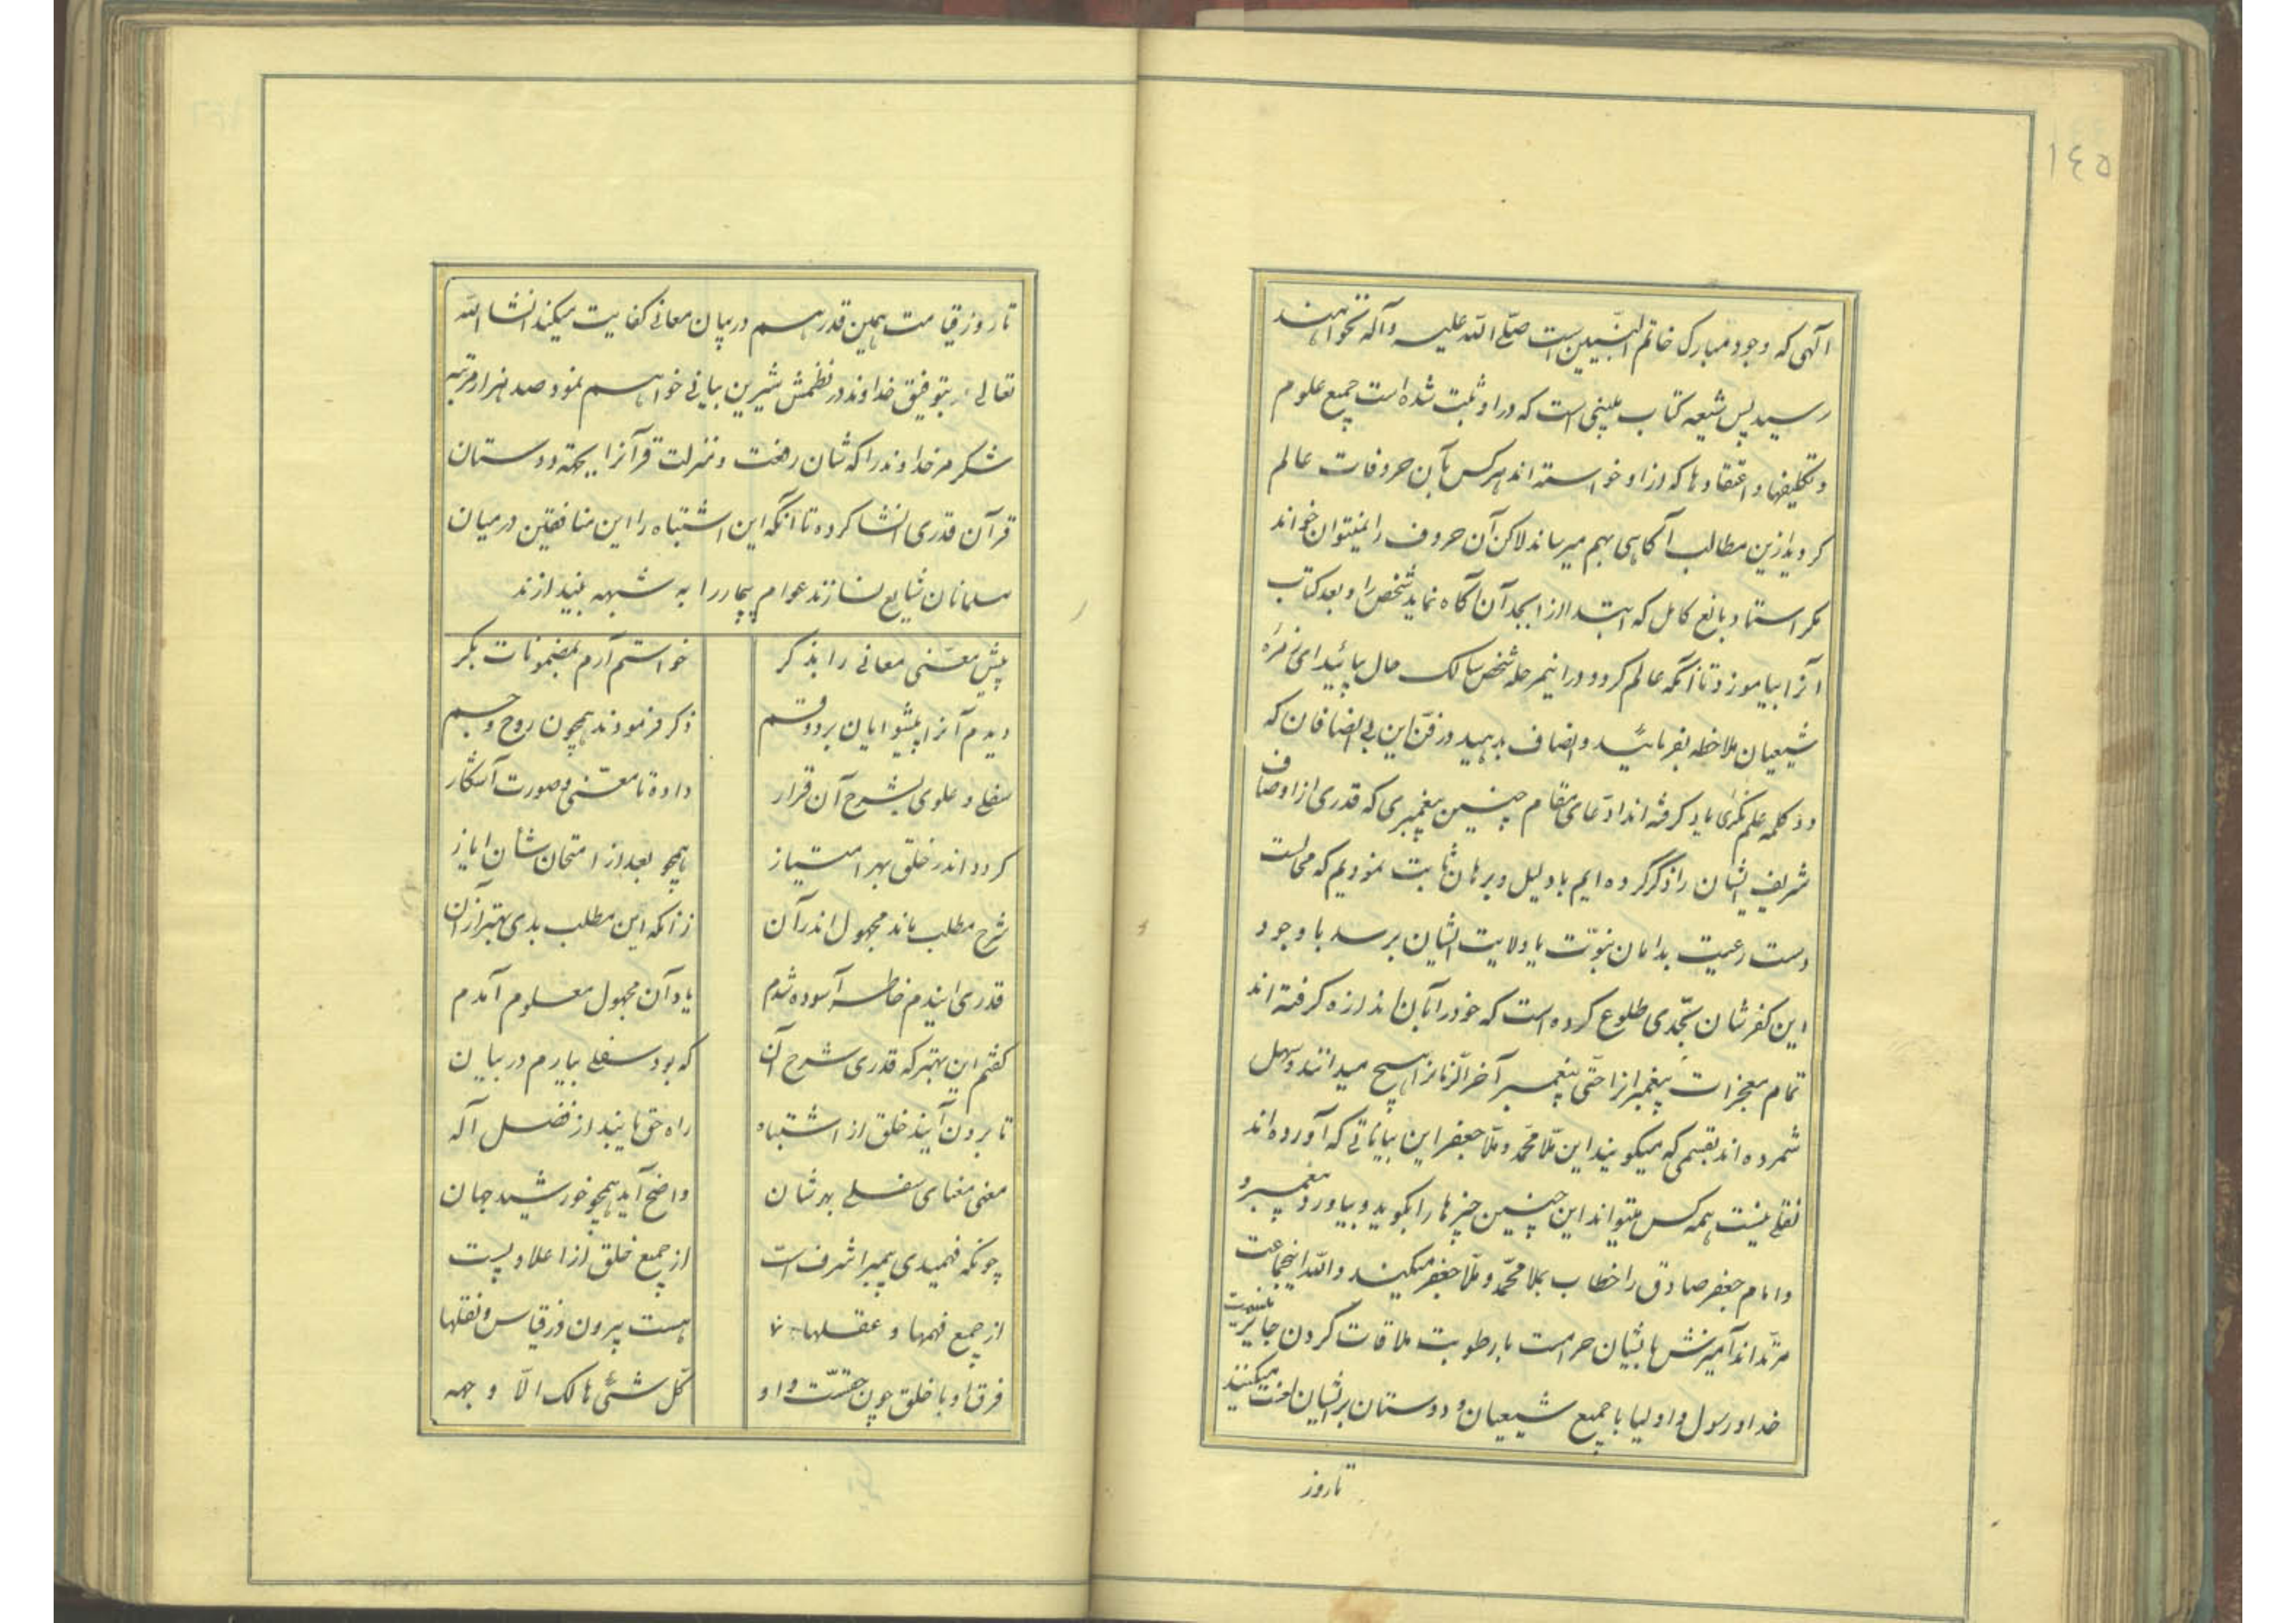 ١٤٥
آلهی که وجود مبارک خاتم النبیین است صلّے اللّه علیه وآله نخواهند
رسید پس شیعه کتاب مبینی است که در او ثبت شده است جمیع علوم
و تکلیفها و اعتقادها که از او خواسته اند هر کس بآن حروفات عالم
کردید ازین مطالب آگاهی بهم میرساند لاکن آن حروف را نمیتوان خواند
مکر استاد بالغ کامل که ابتدا از ابجد آن آگاه نماید شخص را و بعد کتاب
آنرا بیاموزد تا آنگه عالم کردد در اینمرحله شخص سالک حال بیائید ای زمره
شیعیان ملاحظه بفرمائید و انصاف بدهید در فنّ این بی انصافان که
دو کلمه علم فکری یاد کرفته اند ادّعای مقام چنین پیغمبری که قدری از اوصاف
شریف ایشان را ذکر کرده ایم با دلیل و برهان ثابت نمودیم که محالست
دست رعیت بدامان نبوّت یا ولایت ایشان برسد با وجود
این کفرشان بحّدی طلوع کرده است که خود را بآن اندازه کرفته اند
تمام معجزات پیغمبرانرا حتّی پیغمبر آخر الزمانرا هیچ میدانند و سهل
شمرده اند بقسمی که میکویند این ملّا محمّد و ملّا جعفر این بیاناتی که آورده اند
نقلے نیست همه کس میتواند این چنین چیزها را بکوید و بیاورد پیغمبر و
و امام جعفر صادق را خطاب بملا محمّد و ملّا جعفر میکنند واللّه اینجماعت
مرتّد اند آمیزش با ایشان حرامست با رطوبت ملاقات کردن جایز نیست
خدا و رسول و اولیا با جمیع شیعیان و دوستان بر ایشان لعنت میکنند
تا روز
تا روز قیامت همین قدر هم در بیان معانی کفایت میکند انشا اللّه
تعالی بتوفیق خداوند در نظمش شیرین بیانی خواهم نمود صد هزار مرتبه
شکر مر خداوند را که شان رفعت و منزلت قرآنرا بجهة دوستان
قرآن قدری انشا کرده تا آنگه این اشتباه را این منافقین در میان
مسلمانان شایع نسازند عوام بیچاره را به شبهه نیندازند
پیش معنی معانی را بذکر خواستم آرم بمضمونات بکر
دیدم آنرا پیشوایان بر دو قسم ذکر فرمودند همچون روح و جسم
سفلے و علوی بشرح آن قرار داده تا معنی و صورت آشکار
کردد اندر خلق بهر امتیاز همچو بعد از امتحان شان ایاز
شرح مطلب ماند مجهول اندر آن زانکه این مطلب بدی بهتر از آن
قدری ایندم خاطر آسوده شدم یاد آن مجهول معلوم آمدم
کفتم این بهتر که قدری شرح آن که بود سفلے بیارم در بیان
تا برون آیند خلق از اشتباه راه حق یابند از فضل آله
معنی معنای سفلے بهرشان واضح آید همچو خورشید جهان
چونکه فهمیدی پیمبر اشرف است از جمیع خلق از اعلا و پست
از جمیع فهمها و عقلها هست بیرون از قیاس و نقلها
فرق او با خلق چون حقست و او کل شئ هالک الّا وجهه